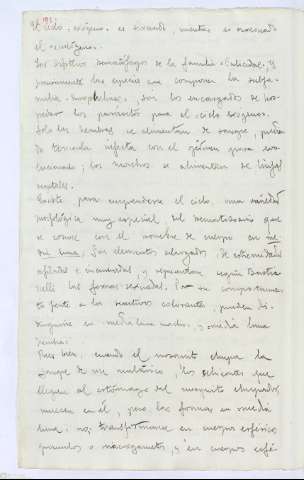 el ciclo exógeno es sexuado, mientras es asexuado
el endógeno.
Los dípteros hematófagos de la familia Culicidae, y
principalmente las especies que componen la subfa-
milia Anophelinae, son los encargados de hos-
pedar los parásitos para el ciclo exógeno.
Solo las hembras se alimentan de sangre, pudien-
do tenerla infecta con el gérmen que
; los machos se alimentan de
vegetales.
Existe para emprenderse el ciclo una variedad
morfológica muy especial del hematozoario que
se conoce con el nombre de cuerpo en me-
dia luna. Son elementos alargados, de extremidades
afiladas e incurvadas, y representan según Bastia-
nelli las formas sexuadas. Por su comportamien-
to frente a los reactivos colorantes, pueden dis-
tinguirse en media luna macho, y media luna
hembra.
Pues bien, cuando el mosquito chupa la
sangre de un palúdico, los que
llegan al estómago del mosquito chupador,
mueren en él, pero las formas en media
luna no; transfórmanse en cuerpos esféricos
y en cuerpos esfé-